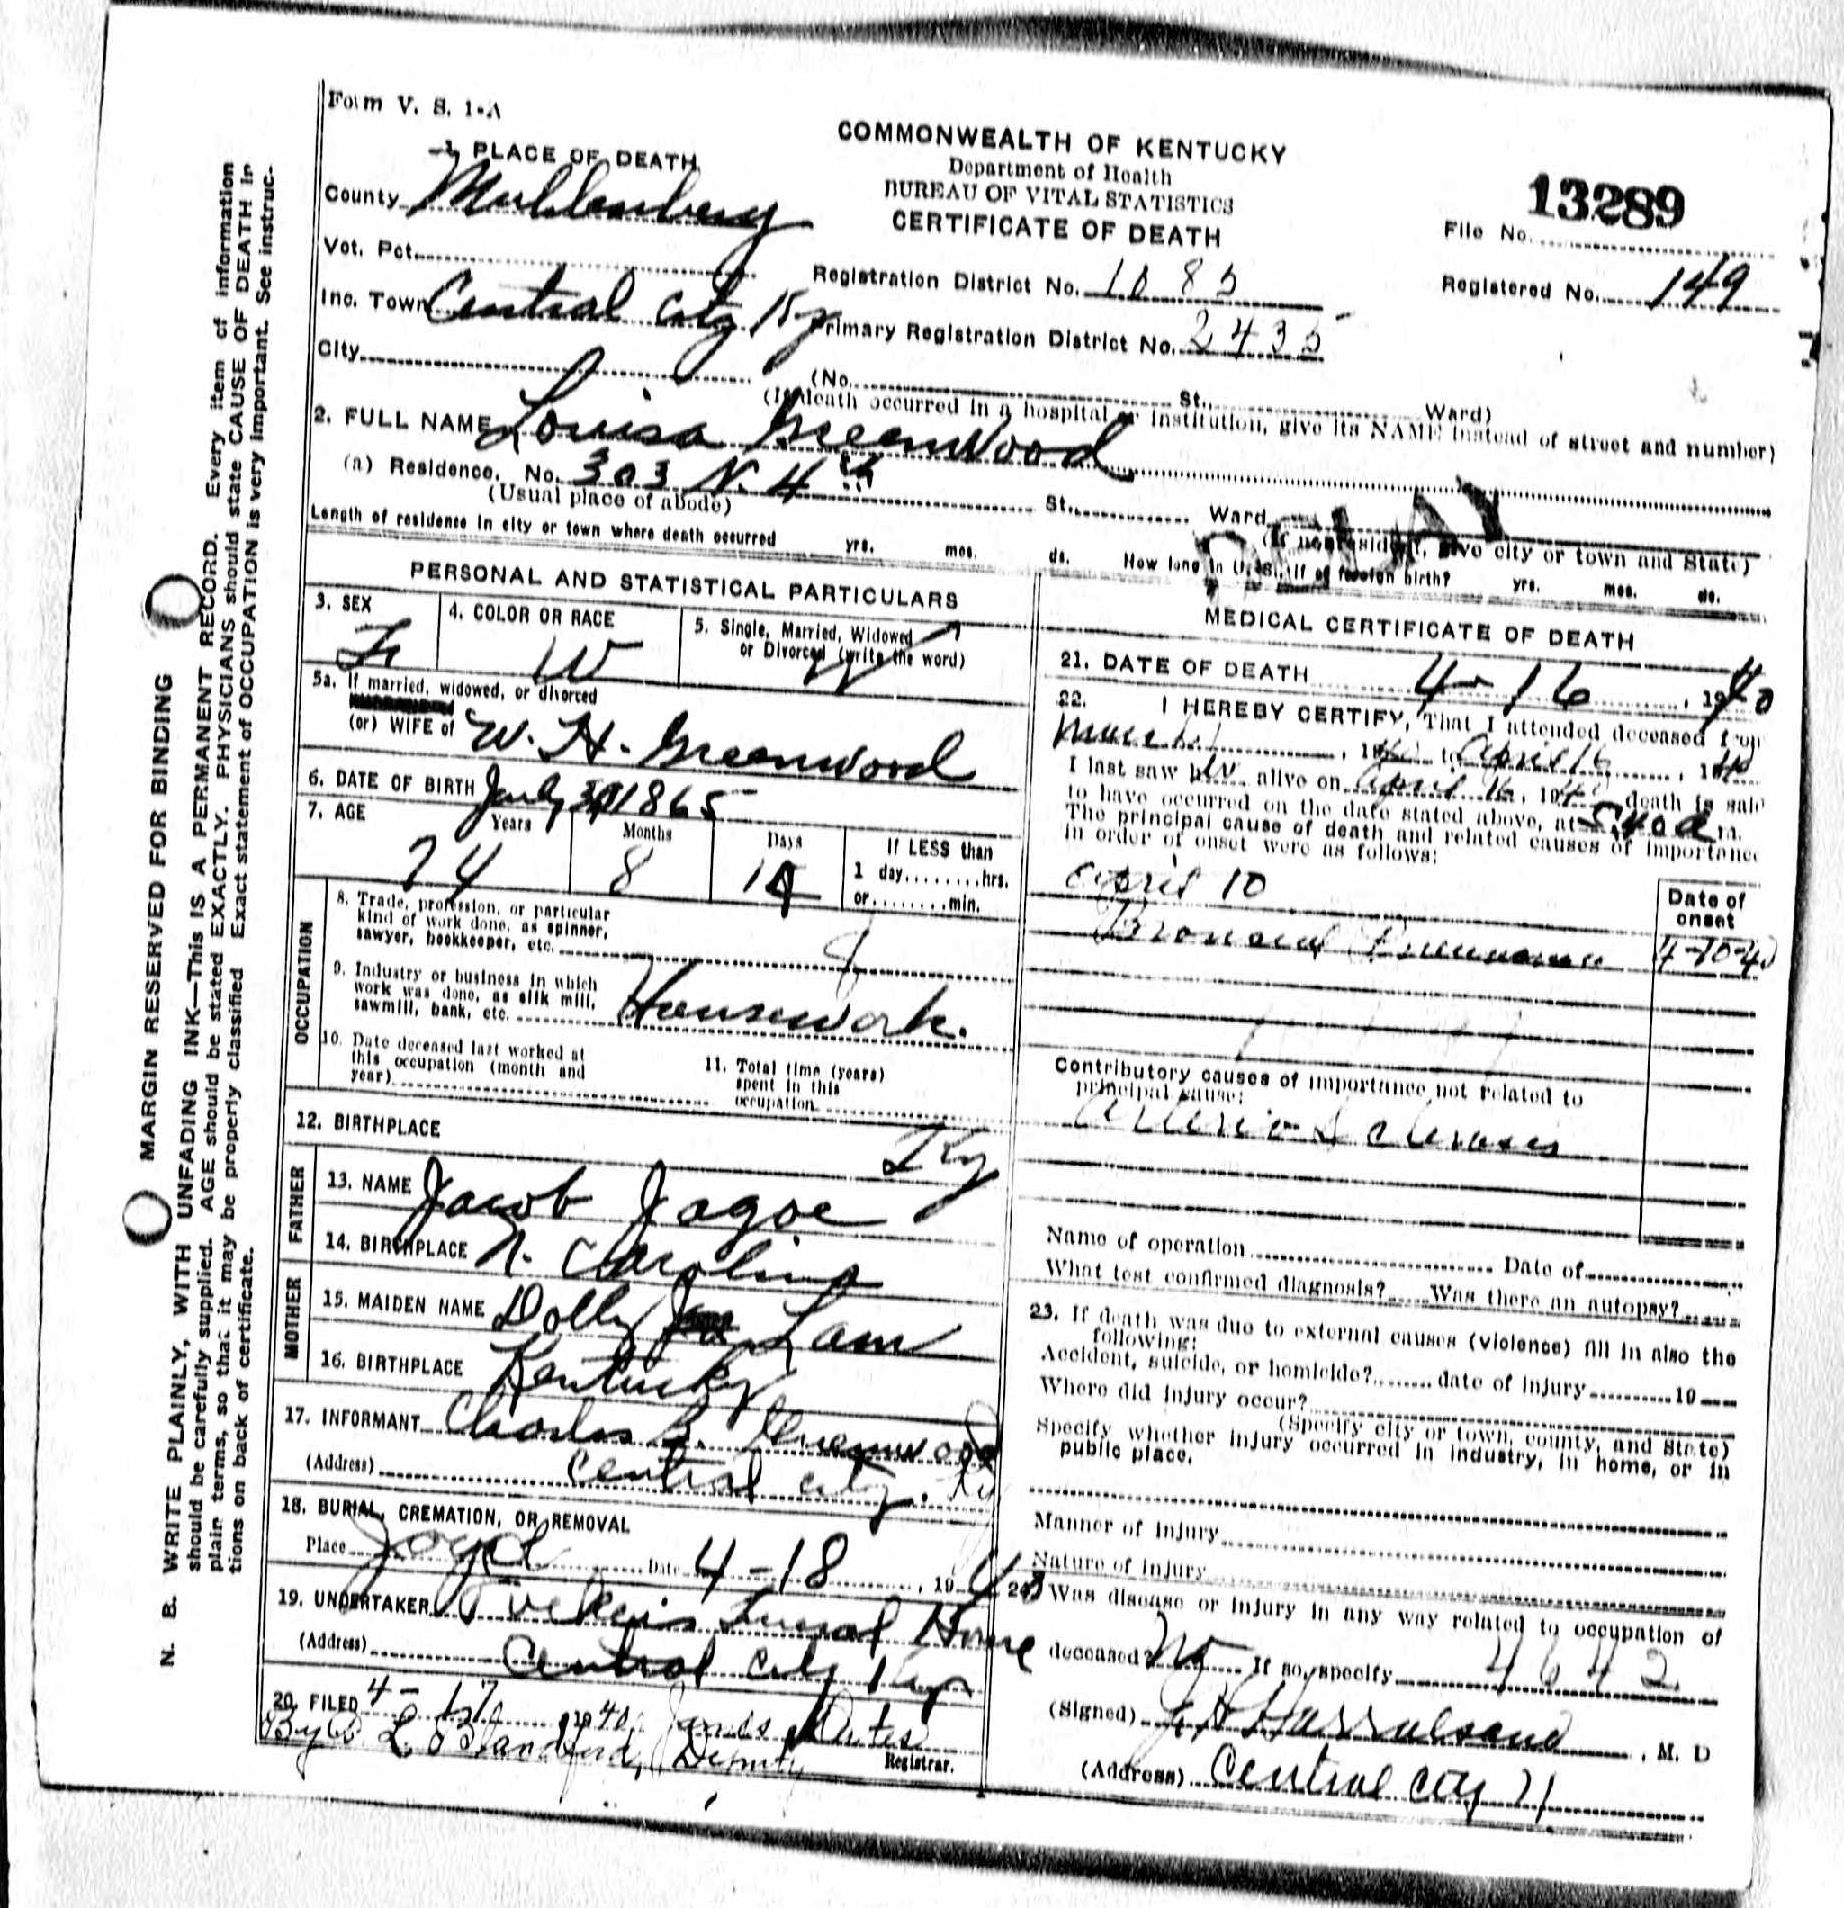 Form V. S. 1-A
COMMONWEALTH OF KENTUCKY
Department of Health
BUREAU OF VITAL STATISTICS
CERTIFICATE OF DEATH
File No. 13289
Registered No. 149
1. PLACE OF DEATH
County Muhlenberg
Vot. Pct.
Inc. Town Central City Ky
City
Registration District No. 1085
Primary Registration District No. 2435
(No. St., Ward)
(If death occurred in a hospital or institution, give its NAME instead of street and number)
2. FULL NAME Louisa Greenwood
(a) Residence, No. 303 N. 4th St., Ward
(Usual place of abode)
(If nonresident, give city or town and State)
DELAY
Length of residence in city or town where death occurred yrs. mos. ds. How long in U. S. if of foreign birth? yrs. mos. ds.
PERSONAL AND STATISTICAL PARTICULARS
3. SEX F
4. COLOR OR RACE W
5. Single, Married, Widowed or Divorced (write the word) W
5a. If married, widowed, or divorced
(or) WIFE of W. H. Greenwood
6. DATE OF BIRTH July 1865
7. AGE Years Months Days If LESS than
74 8 1 day........hrs.
or........min.
OCCUPATION
8. Trade, profession, or particular
kind of work done, as spinner,
sawyer, bookkeeper, etc.
9. Industry or business in which
work was done, as silk mill,
sawmill, bank, etc. Housework.
10. Date deceased last worked at
this occupation (month and
year)
11. Total time (years)
spent in this
occupation
12. BIRTHPLACE Ky
FATHER
13. NAME Jacob Jagoe
14. BIRTHPLACE N. Carolina
MOTHER
15. MAIDEN NAME Dolly Lam
16. BIRTHPLACE Kentucky
17. INFORMANT Charles B. Greenwood
(Address) Central City, Ky
18. BURIAL, CREMATION, OR REMOVAL
Place Date 4-18, 1940
19. UNDERTAKER Tucker's Funeral Home
(Address) Central City Ky
20. FILED 4-17, 1940, James Oates
Registrar.
By L. Blandford, Deputy
MEDICAL CERTIFICATE OF DEATH
21. DATE OF DEATH 4-16, 1940
22. I HEREBY CERTIFY, That I attended deceased from
March, 1940 to April 16, 1940
I last saw her alive on April 16, 1940 death is said
to have occurred on the date stated above, at m.
The principal cause of death and related causes of importance
in order of onset were as follows:
Date of onset
April 10
Bronchial Pneumonia 4-10-40
Contributory causes of importance not related to
principal cause:
Arterio Sclerosis
Name of operation Date of
What test confirmed diagnosis? Was there an autopsy?
23. If death was due to external causes (violence) fill in also the
following:
Accident, suicide, or homicide? date of injury 19
Where did injury occur?
(Specify city or town, county, and State)
Specify whether injury occurred in industry, in home, or in
public place.
Manner of injury
Nature of injury
24. Was disease or injury in any way related to occupation of
deceased? No If so, specify 4642
(Signed) M. D
(Address) Central City
MARGIN RESERVED FOR BINDING
N. B. WRITE PLAINLY, WITH UNFADING INK—This IS A PERMANENT RECORD. Every item of information
should be carefully supplied. AGE should be stated EXACTLY. PHYSICIANS should state CAUSE OF DEATH in
plain terms, so that it may be properly classified Exact statement of OCCUPATION is very important. See instruc-
tions on back of certificate.